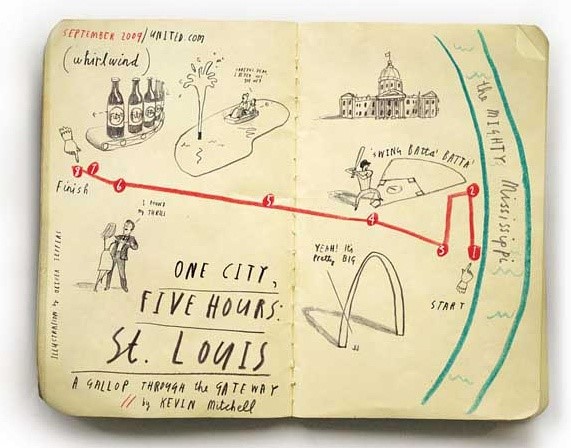 SEPTEMBER 2009/UNITED.COM
(whirlwind)
8
7
Finish
6
I FOUND
MY THRILL
5
ONE CITY,
FIVE HOURS:
St. LOUIS
A GALLOP THROUGH the GATEWAY
// by KEVIN Mitchell
ILLUSTRATION by OLIVER JEFFERS
'SWING BATTA' BATTA'
2
4
3
1
YEAH! It's
Pretty BIG
START
the MIGHTY Mississippi